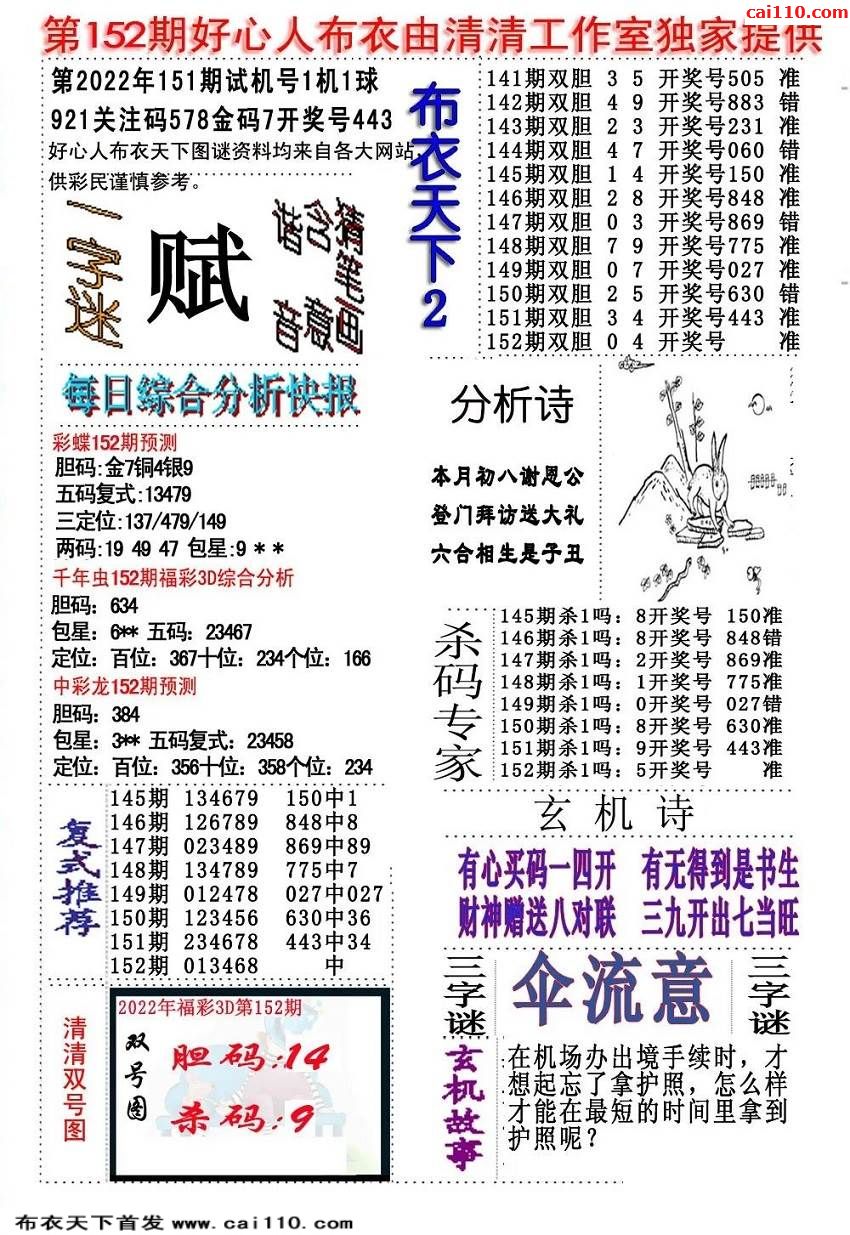 cai110.com
第152期好心人布衣由清清工作室独家提供
第2022年151期试机号1机1球
921关注码578金码7开奖号443
好心人布衣天下图谜资料均来自各大网站,
供彩民谨慎参考。
一字迷
赋
猜笔画
含意
谐音
布衣天下2
141期双胆 3 5 开奖号505 准
142期双胆 4 9 开奖号883 错
143期双胆 2 3 开奖号231 准
144期双胆 4 7 开奖号060 错
145期双胆 1 4 开奖号150 准
146期双胆 2 8 开奖号848 准
147期双胆 0 3 开奖号869 错
148期双胆 7 9 开奖号775 准
149期双胆 0 7 开奖号027 准
150期双胆 2 5 开奖号630 错
151期双胆 3 4 开奖号443 准
152期双胆 0 4 开奖号 准
每日综合分析快报
彩蝶152期预测
胆码:金7铜4银9
五码复式:13479
三定位:137/479/149
两码:19 49 47 包星:9 * *
千年虫152期福彩3D综合分析
胆码：634
包星：6** 五码：23467
定位：百位：367十位：234个位：166
中彩龙152期预测
胆码：384
包星：3** 五码复式：23458
定位：百位：356十位：358个位：234
分析诗
本月初八谢恩公
登门拜访送大礼
六合相生是子丑
杀码专家
145期杀1吗：8开奖号 150准
146期杀1吗：8开奖号 848错
147期杀1吗：2开奖号 869准
148期杀1吗：1开奖号 775准
149期杀1吗：0开奖号 027错
150期杀1吗：8开奖号 630准
151期杀1吗：9开奖号 443准
152期杀1吗：5开奖号 准
复式推荐
145期 134679 150中1
146期 126789 848中8
147期 023489 869中89
148期 134789 775中7
149期 012478 027中027
150期 123456 630中36
151期 234678 443中34
152期 013468 中
玄机诗
有心买码一四开 有无得到是书生
财神赠送八对联 三九开出七当旺
三字谜
伞流意
三字谜
清清双号图
2022年福彩3D第152期
双号图
胆码:14
杀码:9
玄机故事
在机场办出境手续时，才
想起忘了拿护照，怎么样
才能在最短的时间里拿到
护照呢？
布衣天下首发 www.cai110.com